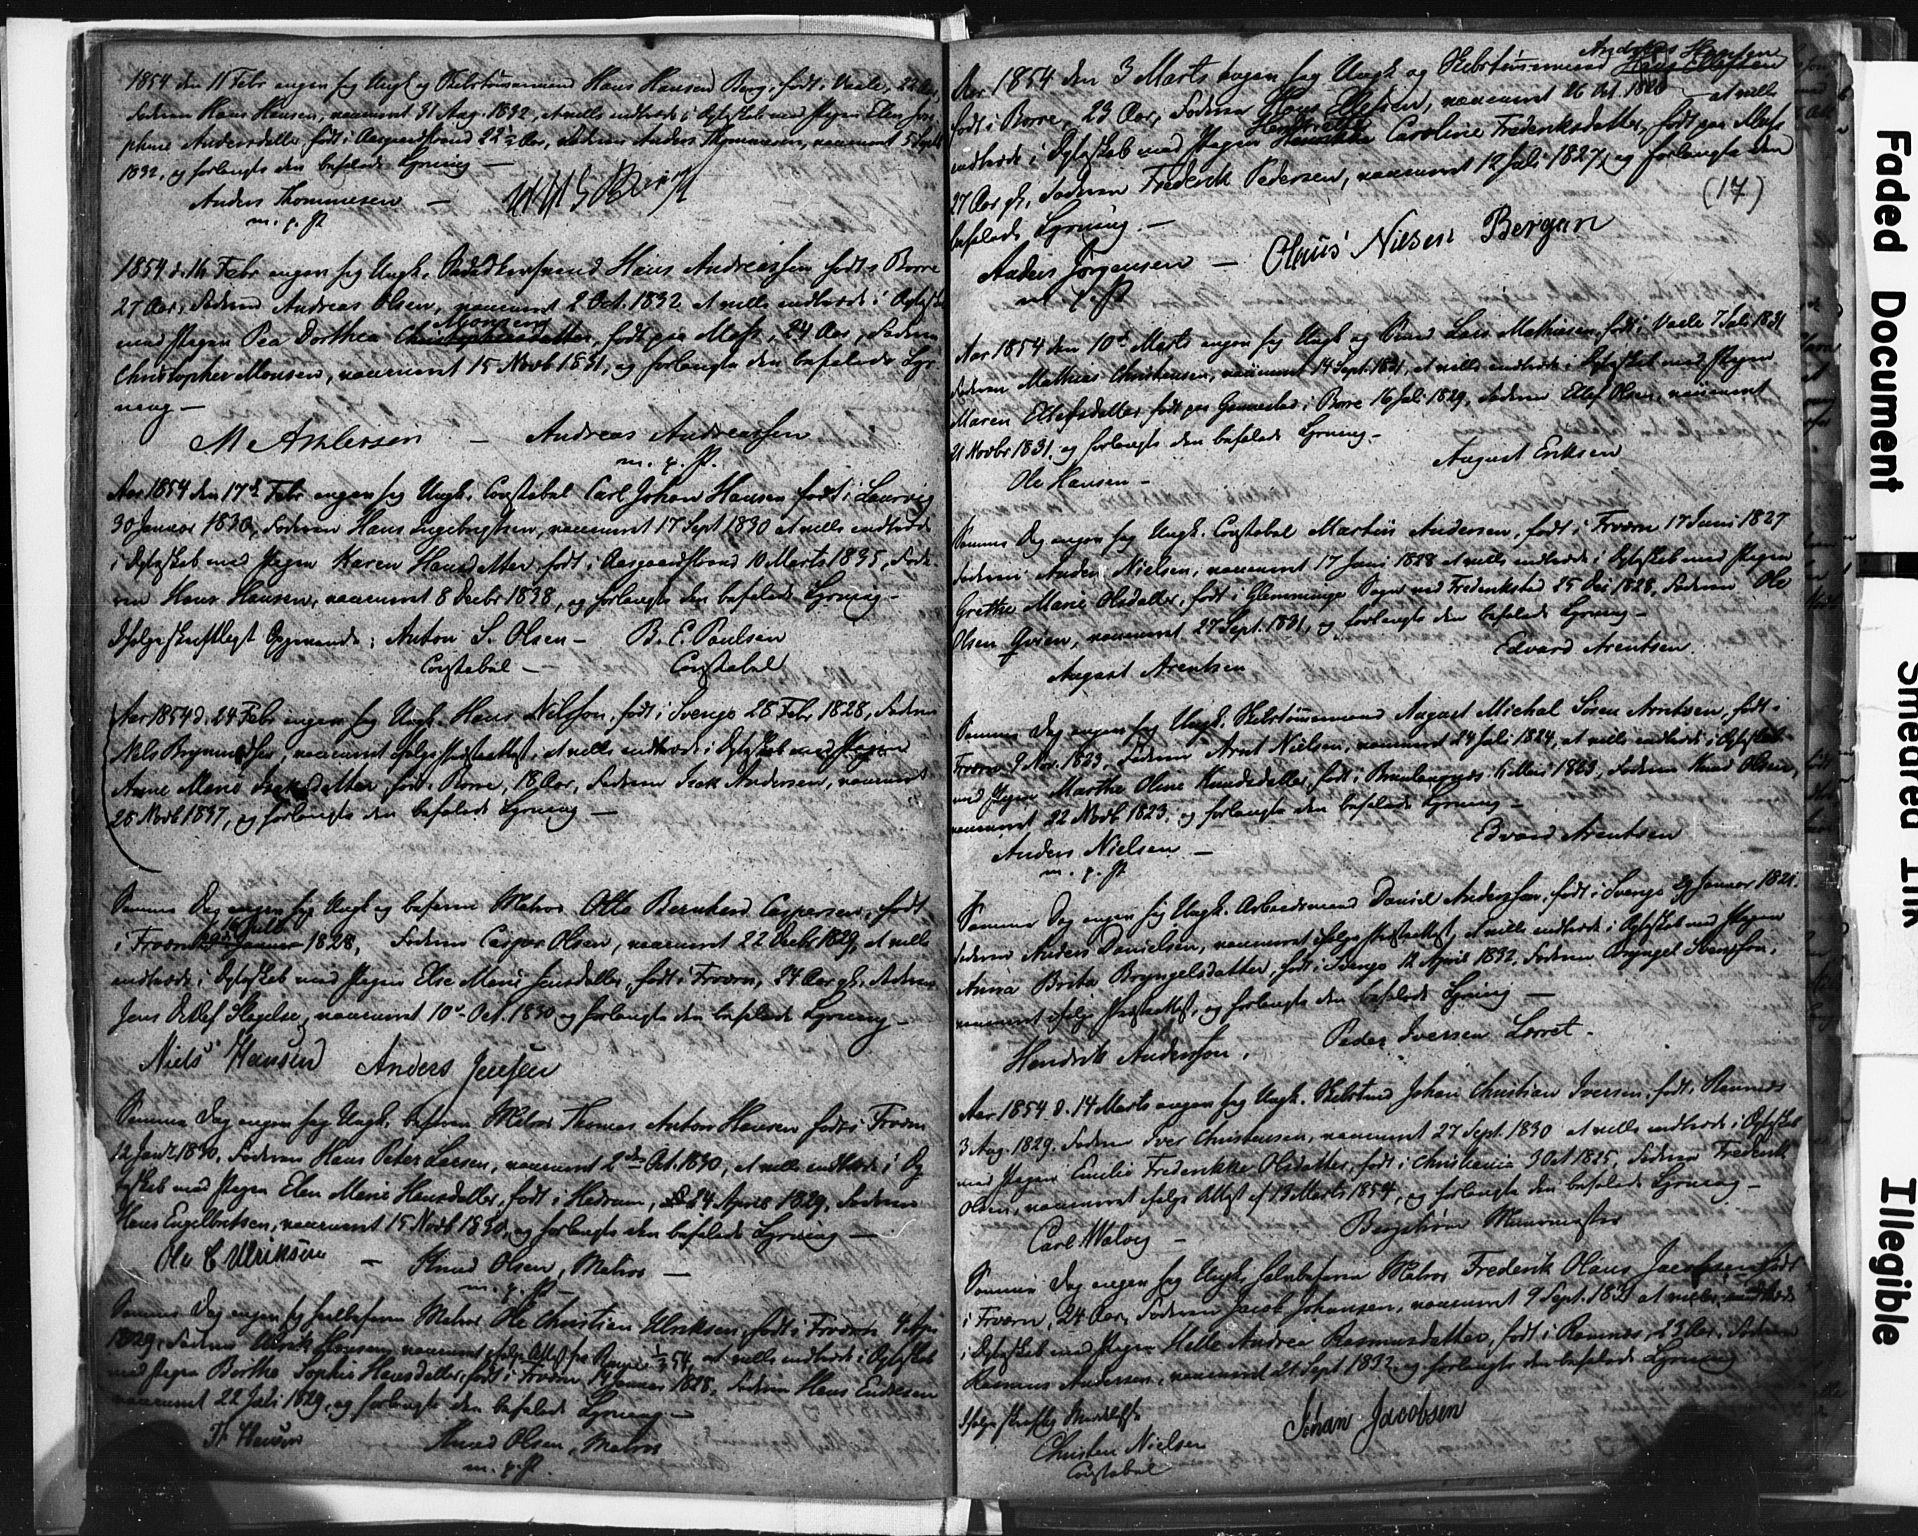 1854 den 11 Febr angav sig Ungk og Skibstømmermand Hans Hansen Berg, født i Vaale, 22 Aar,
Faderen Hans Hansen, vaccineret 31 Aug. 1832, at ville indtræde i Ægteskab med Pigen Elen Jose-
phine Andersdatter, født i Aasgaardstrand 22 Aar, Faderen Anders Thommesen, vaccineret 5 Sept
1832, og forlangte den befalede Lysning —
Anders Thommesen —
m. p. P.
1854 d. 16 Febr angav sig Ungk. Hans Andreassen født i Borre
27 Aar, Faderen Andreas Olsen, vaccineret 2 Oct. 1832 at ville indtræde i Ægteskab
Monsen
med Pigen Pea Dorthea Christophersdatter, født paa Moss, 24 Aar, Faderen
Christopher Monsen, vaccineret 15 Novb 1831, og forlangte den befalede Lys-
ning —
M Andersen — Andreas Andreassen
m. p. P.
Aar 1854 den 17de Febr angav sig Ungk. Constabel Carl Johan Hansen født i Laurvig
30 Januar 1830, Faderen Hans Ingebregtsen, vaccineret 17 Sept 1830 at ville indtræde
i Ægteskab med Pigen Karen Hansdatter, født i Aasgaardstrand 10 Marts 1835, Fade-
ren Hans Hansen, vaccineret 8 Decbr 1838, og forlangte den befalede Lysning —
Ifølge skriftligt : Anton S. Olsen — B. E. Paulsen
Constabel — Constabel
Aar 1854 d. 24 Febr angav sig Ungk. Hans Nilsson, født i Sverige 28 Febr 1828, Faderen
Nels, vaccineret ifølge Præsteattest, at ville indtræde i Ægteskab med Pigen
Anne Marie Isaksdatter født i Borre, 18 Aar, Faderen Isak Andersen, vaccineret
28 Novb 1837, og forlangte den befalede Lysning —
Samme Dag angav sig Ungk og befaren Matros Otto Bernhard Caspersen, født
Juli
i Frværn Januar 1828, Faderen Casper Olsen, vaccineret 22 Decbr 1829, at ville
indtræde i Ægteskab med Pigen Else Marie Jensdatter, født i Frværn, 24 Aar gl. Faderen
Jens Detlef Slagelse, vaccineret 10de Oct. 1830 og forlangte den befalede Lysning —
Niels Hansen Anders Jensen
Samme Dag angav sig Ungk. befaren Matros Thomas Anton Hansen født i Frværn
12 Jan 1830, Faderen Hans Peter Larsen, vaccineret 2den Oct. 1830, at ville indtræde i Æg-
teskab med Pigen Elen Marie Hansdatter, født i Hedrum, 24 April 1829, Faderen
Hans Engelbretsen, vaccineret 15 Novb 1830, og forlangte den befalede Lysning —
Ole C Ulriksen — Knud Olsen, Matros —
m. p. P.
Samme Dag angav sig halbefaren Matros Ole Christian Ulriksen, født i Frværn 4 Apr
1829, Faderen Ulrik Hansen, vaccineret ifølge Attest fra 54, at ville indtræde i Ægteskab
med Pigen Berthe Sophie Hansdatter, født i Frværn 14 Januar 1828, Faderen Hans Endresen
vaccineret 22 Juli 1829, og forlangte den befalede Lysning —
Fr Hansen Knud Olsen, Matros
m. p. P.
Andreas Hansen
Aar 1854 den 3 Marts angav sig Ungk og Skibstømmermand Hans Ellefsen
født i Borre, 23 Aar, Faderen Hans Ellefsen, vaccineret 26 Oct. at ville
indtræde i Ægteskab med Pigen Caroline Frederiksdatter, født paa Moss
27 Aar gl., Faderen Frederik Pedersen, vaccineret 12 Juli 1827, og forlangte den
befalede Lysning —
(17)
Anders Jørgensen — Olaus Nilsen Bergan
m. p. P.
Aar 1854 den 10de Marts angav sig Ungk og Lars Mathisen, født i Vaale 7 Juli 1831
Faderen Mathias Christensen, vaccineret 14 Sept. 1831, at ville indtræde i Ægteskab med Pigen
Maren Ellefsdatter født paa Gannestad i Borre 16 Juli 1829, Faderen Ellef Olsen, vaccineret
21 Novbr 1831, og forlangte den befalede Lysning —
Ole Hansen — August Eriksen
Samme Dag angav sig Ungk. Constabel Martin Andersen, født i Frværn 17 Juni 1827
Faderen Anders Nielsen, vaccineret 17 Juni 1828 at ville indtræde i Ægteskab med Pigen
Grethe Marie Olsdatter, født i Glemminge Sogn ved Frederikstad 25 Dec 1828, Faderen Ole
Olsen Qvien, vaccineret 27 Sept. 1831, og forlangte den befalede Lysning —
August Arentsen Edvard Arentsen
Samme Dag angav sig Ungk. Skibstømmermand August Michal Sören Arntsen, født i
Frværn 9 Nov. 1823, Faderen Arnt Nielsen, vaccineret 24 Juli 1824, at ville indtræde i Ægteskab
med Pigen Marthe Oline Knudsdatter, født i Brunlaugnæs 1823, Faderen Knud Olsen,
vaccineret 22 Novb. 1823, og forlangte den befalede Lysning —
Anders Nielsen — Edvard Arentsen
m. p. P.
Samme Dag angav sig Ungk. Arbeidsmand Daniel Andersson, født i Sverige 29 Januar 1821
Faderen Anders Danielsen, vaccineret ifølge Præsteattest, at ville indtræde i Ægteskab med Pigen
Anna Brita Bryngelsdatter, født i Sverige 12 April 1832, Faderen Bryngel Svensson,
vaccineret ifølge Præsteattest, og forlangte den befalede Lysning —
Hendrik Andersson. Peder Iversen Lerret.
Aar 1854 d. 14 Marts angav sig Ungk. Skibstmd Johan Christian Iversen, født i Ramnæs
3 Aug. 1829, Faderen Iver Christensen, vaccineret 27 Sept. 1830 at ville indtræde i Ægteskab
med Pigen Emilie Frederikke Olsdatter, født i Christiania 30 Oct 1825, Faderen Frederik
Olsen, vaccineret ifølge Attest af 13 Marts 1854, og forlangte den befalede Lysning —
Carl Walvig — Bergstrøm Muurmester
Samme Dag angav sig Ungk. halvbefaren Matros Frederik Olaus Jacobsen født
i Frværn, 24 Aar, Faderen Jacob Johansen, vaccineret 9 Sept. 1831 at ville indtræde
i Ægteskab med Pigen Helle Andrea Rasmusdatter, født i Ramnæs 23 Aar, Faderen
Rasmus Andersen, vaccineret 21 Sept. 1832, og forlangte den befalede Lysning
Ifølge skriftlig
Christen Nielsen Johan Jacobsen
Constabel
Faded Document
Smeared Ink
Illegible